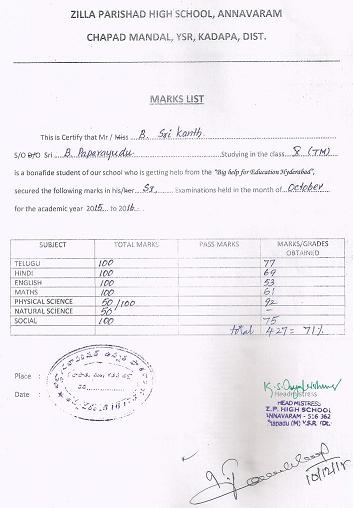 ZILLA PARISHAD HIGH SCHOOL, ANNAVARAM
CHAPAD MANDAL, YSR, KADAPA, DIST.
MARKS LIST
This is Certify that Mr / Miss B. Sri Kanth
S/O D/O Sri B. Paparayudu Studying in the class 8 (TM)
is a bonafide student of our school who is getting help from the "Big help for Education Hyderabad",
secured the following marks in his/her Examinations held in the month of October
for the academic year 2015 to 2016.
SUBJECT TOTAL MARKS PASS MARKS MARKS/GRADES OBTAINED
TELUGU 100 77
HINDI 100 69
ENGLISH 100 53
MATHS 100 61
PHYSICAL SCIENCE 50 /100 92
NATURAL SCIENCE 50 -
SOCIAL 100 75
total 427 = 71%
Place :
Date :
Headmistress
HEAD MISTRESS
Z.P. HIGH SCHOOL
ANNAVARAM - 516 362
10/12/15